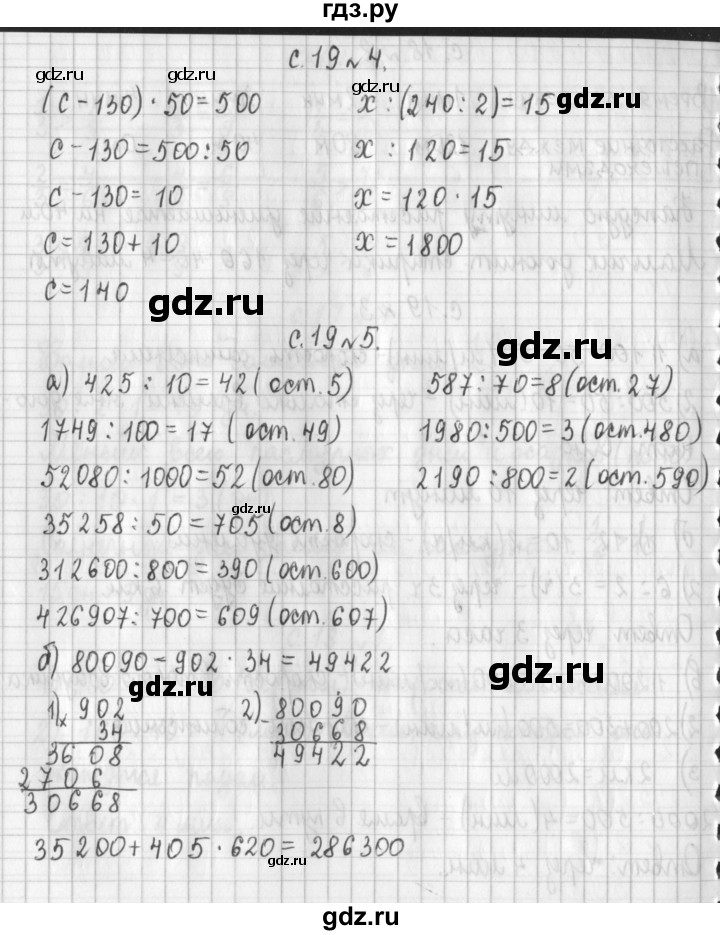 гдз.ру
с.19 № 4.
(с - 130) · 50 = 500
с - 130 = 500 : 50
с - 130 = 10
с = 130 + 10
с = 140
х : (240 : 2) = 15
х : 120 = 15
х = 120 · 15
х = 1800
с.19 № 5.
а) 425 : 10 = 42 (ост. 5)
587 : 70 = 8 (ост. 27)
1749 : 100 = 17 (ост. 49)
1980 : 500 = 3 (ост. 480)
52080 : 1000 = 52 (ост. 80)
2190 : 800 = 2 (ост. 590)
35258 : 50 = 705 (ост. 8)
312600 : 800 = 390 (ост. 600)
426907 : 700 = 609 (ост. 607)
б) 80090 - 902 · 34 = 49422
1) × 902
34
3608
2706
30668
2) - 80090
30668
49422
35200 + 405 · 620 = 286300
gdz.ru
gdz.ru
gdz.ru
gdz.ru
gdz.ru
gdz.ru
gdz.ru
gdz.ru
gdz.ru
gdz.ru
gdz.ru
gdz.ru
gdz.ru